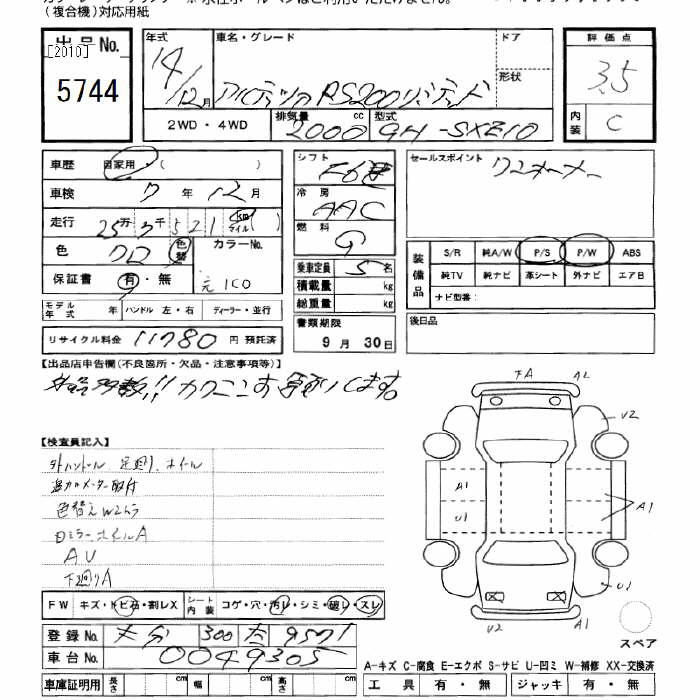 (複合機)対応用紙
出品No.
[2010]
5744
年式
14/12月
車名・グレード
アルテッツァRS200リミテッド
ドア
形状
2WD・4WD
排気量 2000 cc
型式 GH-SXE10
評価点
3.5
内装 C
車歴 自家用・( )
車検 7年12月
走行 25万7千521 km マイル ( )
色 クロ 色替 カラーNo.
保証書 有・無 元1C0
モデル年式 年 ハンドル 左・右 ディーラー・並行
リサイクル料金 11780 円 預託済
シフト F6
冷房 AAC
燃料 G
乗車定員 5名
積載量 kg
総重量 kg
書類期限
9月 30日
セールスポイント ワンオーナー
装備品 S/R 純A/W P/S P/W ABS
純TV 純ナビ 革シート 外ナビ エアB
ナビ型番:
後日品
【出品店申告欄(不良箇所・欠品・注意事項等)】
【検査員記入】
外ハンドル 足回り、ホイル
追加メーター取付
色替えWムラ
ミラー、ホイルA
AU
下廻りA
FW キズ・トビ石・割レX シート内装 コゲ・穴・汚レ・シミ・破レ・スレ
登録No. 大分 300 9571
車台No. 0049305
車庫証明用 長さ cm 幅 cm 高さ cm
FA A2
U2
A1
U1
A1
U1
U2 A1
スペア
A-キズ C-腐食 E-エクボ S-サビ U-凹ミ W-補修 XX-交換済
工具 有・無 ジャッキ 有・無